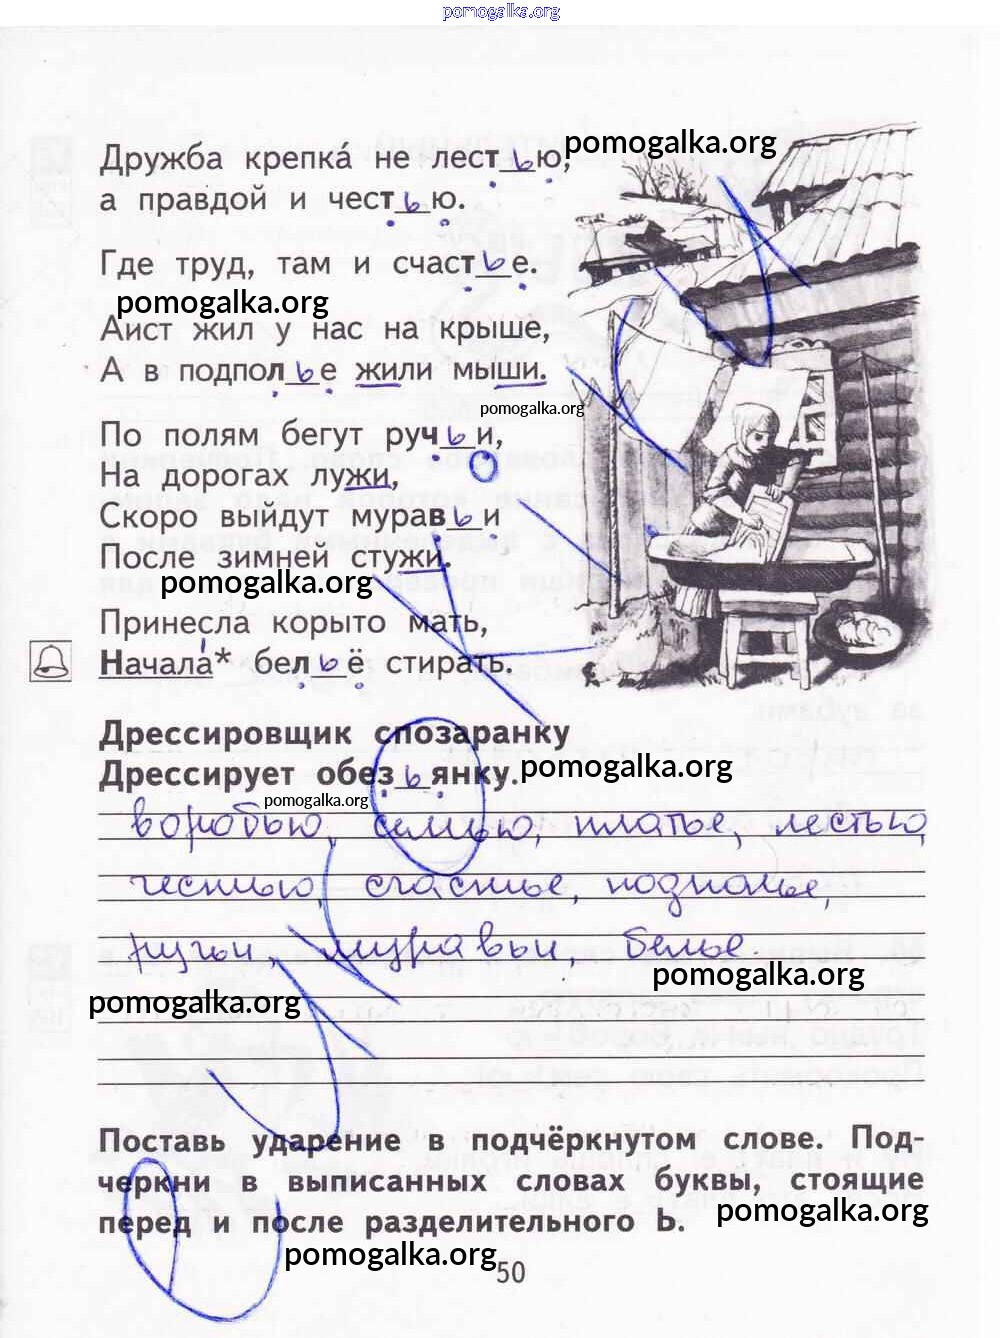 pomogalka.org
pomogalka.org
Дружба крепка́ не лест ь ю,
а правдой и чест ь ю.
Где труд, там и счаст ь е.
pomogalka.org
Аист жил у нас на крыше,
А в подпол ь е жили мыши.
pomogalka.org
По полям бегут руч ь и,
На дорогах лужи,
Скоро выйдут мурав ь и
После зимней стужи.
pomogalka.org
Принесла корыто мать,
Начала́* бел ь ё стирать.
Дрессировщик спозаранку
Дрессирует обез ь янку.
pomogalka.org
pomogalka.org
воробью, семью, платье, лестью,
честью, счастье, подполье,
ручьи, муравьи белье
pomogalka.org
pomogalka.org
Поставь ударение в подчёркнутом слове. Под-
черкни в выписанных словах буквы, стоящие
перед и после разделительного Ь.
pomogalka.org
pomogalka.org
50